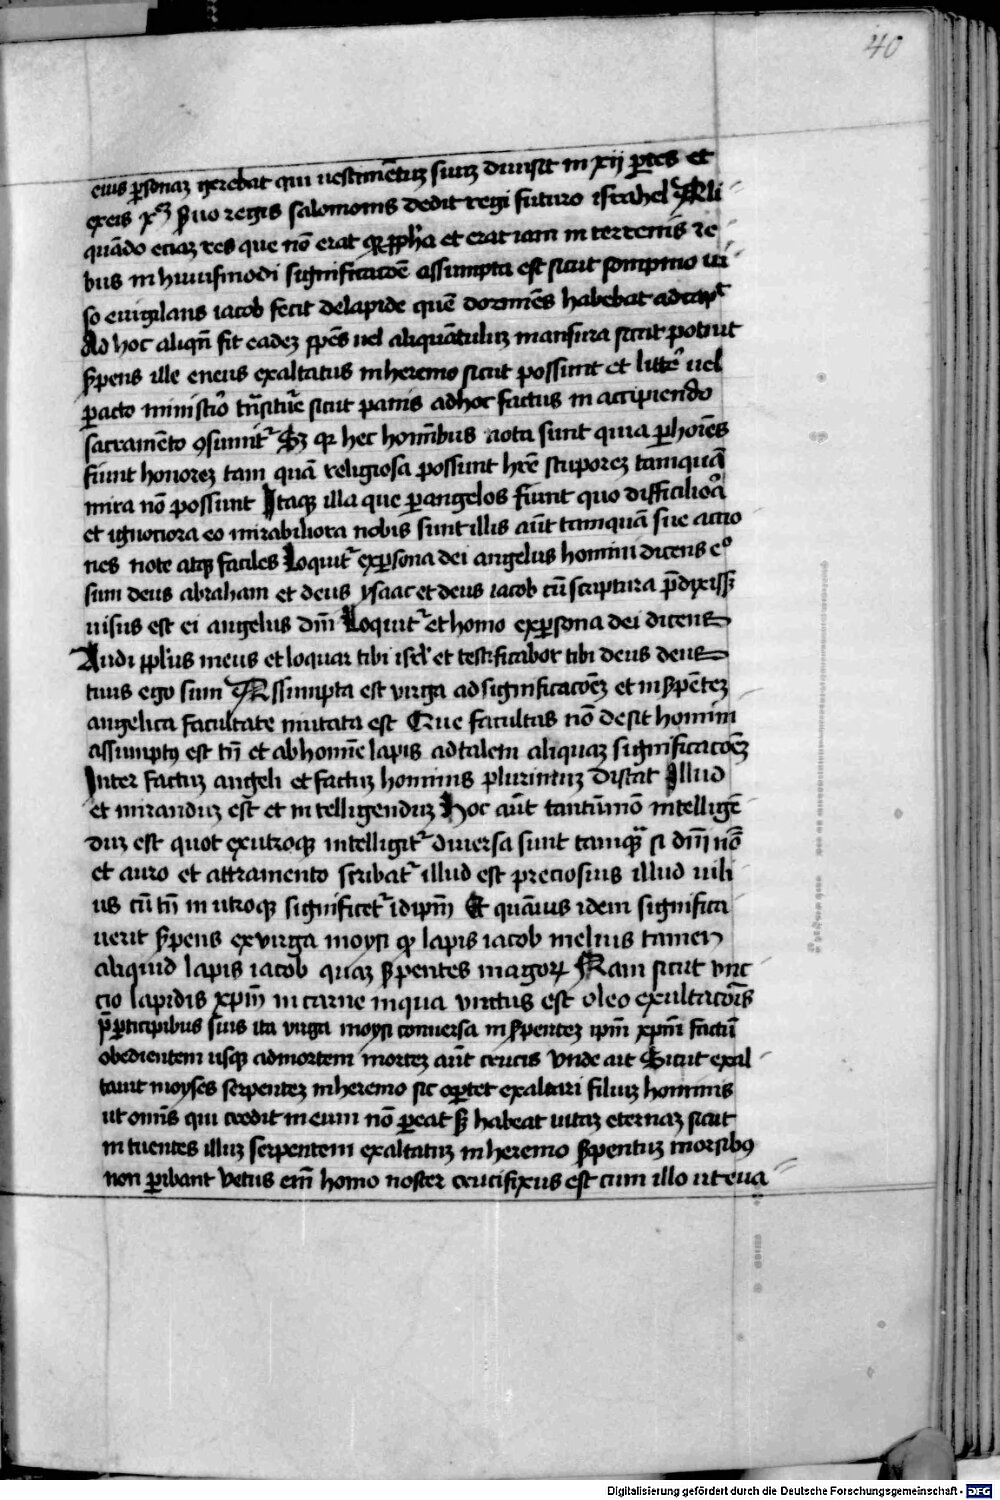 40
eius ꝑsonaꝫ gerebat qui uestimētuꝫ suuꝫ diuisit in xij ꝑtes et
exeis x s̄uo regis salomonis dedit regi futuro israhel Ali
quādo eciaꝫ res que nō erat ꝓpħa et erat iam in terrenis re
bus in huiusmodi significacōē assumpta est sicut sompnio ui
so euigilans iacob fecit delapide quē dormiēs habebat adcapᵗ
Ad hoc aliqn̄ fit eadeꝫ spēs uel aliquātuluꝫ mansura sicut potuit
s̄pens ille eneus exaltatus inheremo sicut possunt et litte᷑ uel
ꝑacto ministio᷑ tn̄situr̄e sicut panis adhoc factus in accipiendo
sacramēto ꝯsumit᷑ Sꝫ qꝛ hec homībus nota sunt quia ꝑhoiēs
fiunt honoreꝫ tam quā religiosa possunt hr̄e stuporeꝫ tamquā
mira nō possunt Itaqꝫ illa que ꝑangelos fiunt quo difficilioᷓ
et ignociora eo mirabiliora nobis sunt illis aūt tamquā sue actio
nes note atqꝫ faciles Loquit᷑ exꝑsona dei angelus homini dicens eᵒ
sum deus abraham et deus ysaac et deus iacob cū scriptura p̄dixissꝫ
uisus est ei angelus dm̄ Loquit᷑ et homo exꝑsona dei dicens
Audi pplūs meus et loquar tibi isrl̄ et testificabor tibi deus deus
tuus ego sum Assumpta est virga adsignificacōeꝫ et in s̄pēteꝫ
angelica facultate mutata est Que facultas nō desit homini
assumptꝰ est tn̄ et abhomīe lapis adtalem aliquaꝫ significacōeꝫ
Inter factuꝫ angeli et factuꝫ hominis plurimuꝫ distat Illud
et miranduꝫ est et intelligenduꝫ Hoc aūt tantūmō intelligē
duꝫ est quot exutroqꝫ intelligit᷑ diuersa sunt tamqᷓ si dn̄i nō
et auro et attramento scribat᷑ illud est preciosius illud uili
us cū tn̄ in utroqꝫ significet᷑ idip̄m Et quāuis idem significa
uerit s̄pens exvirga moysi qͦ lapis iacob melius tamen
aliquid lapis iacob quaꝫ s̄pentes magoꝝ Nam sicut vnc
cio lapidis xp̄m in carne inqua vnctus est oleo exultacōis
p̄ ꝑticipibus suis ita virga moysi conuersa in s̄penteꝫ ip̄m xp̄m factū
obedientem usqꝫ admortem morteꝫ aūt crucis Vnde ait Sicut exal
tauit moyses serpenteꝫ inheremo sic oꝑtet exaltari filiuꝫ hominis
ut omīs qui credit in eum nō ꝑeat sꝫ habeat uitaꝫ eternaꝫ sicut
in tuentes illuꝫ serpentem exaltatuꝫ in heremo s̄pentuꝫ morsibꝰ
non ꝑibant Vetus em̄ homo noster crucifixus est cum illo ut eua
Digitalisierung gefördert durch die Deutsche Forschungsgemeinschaft - DFG